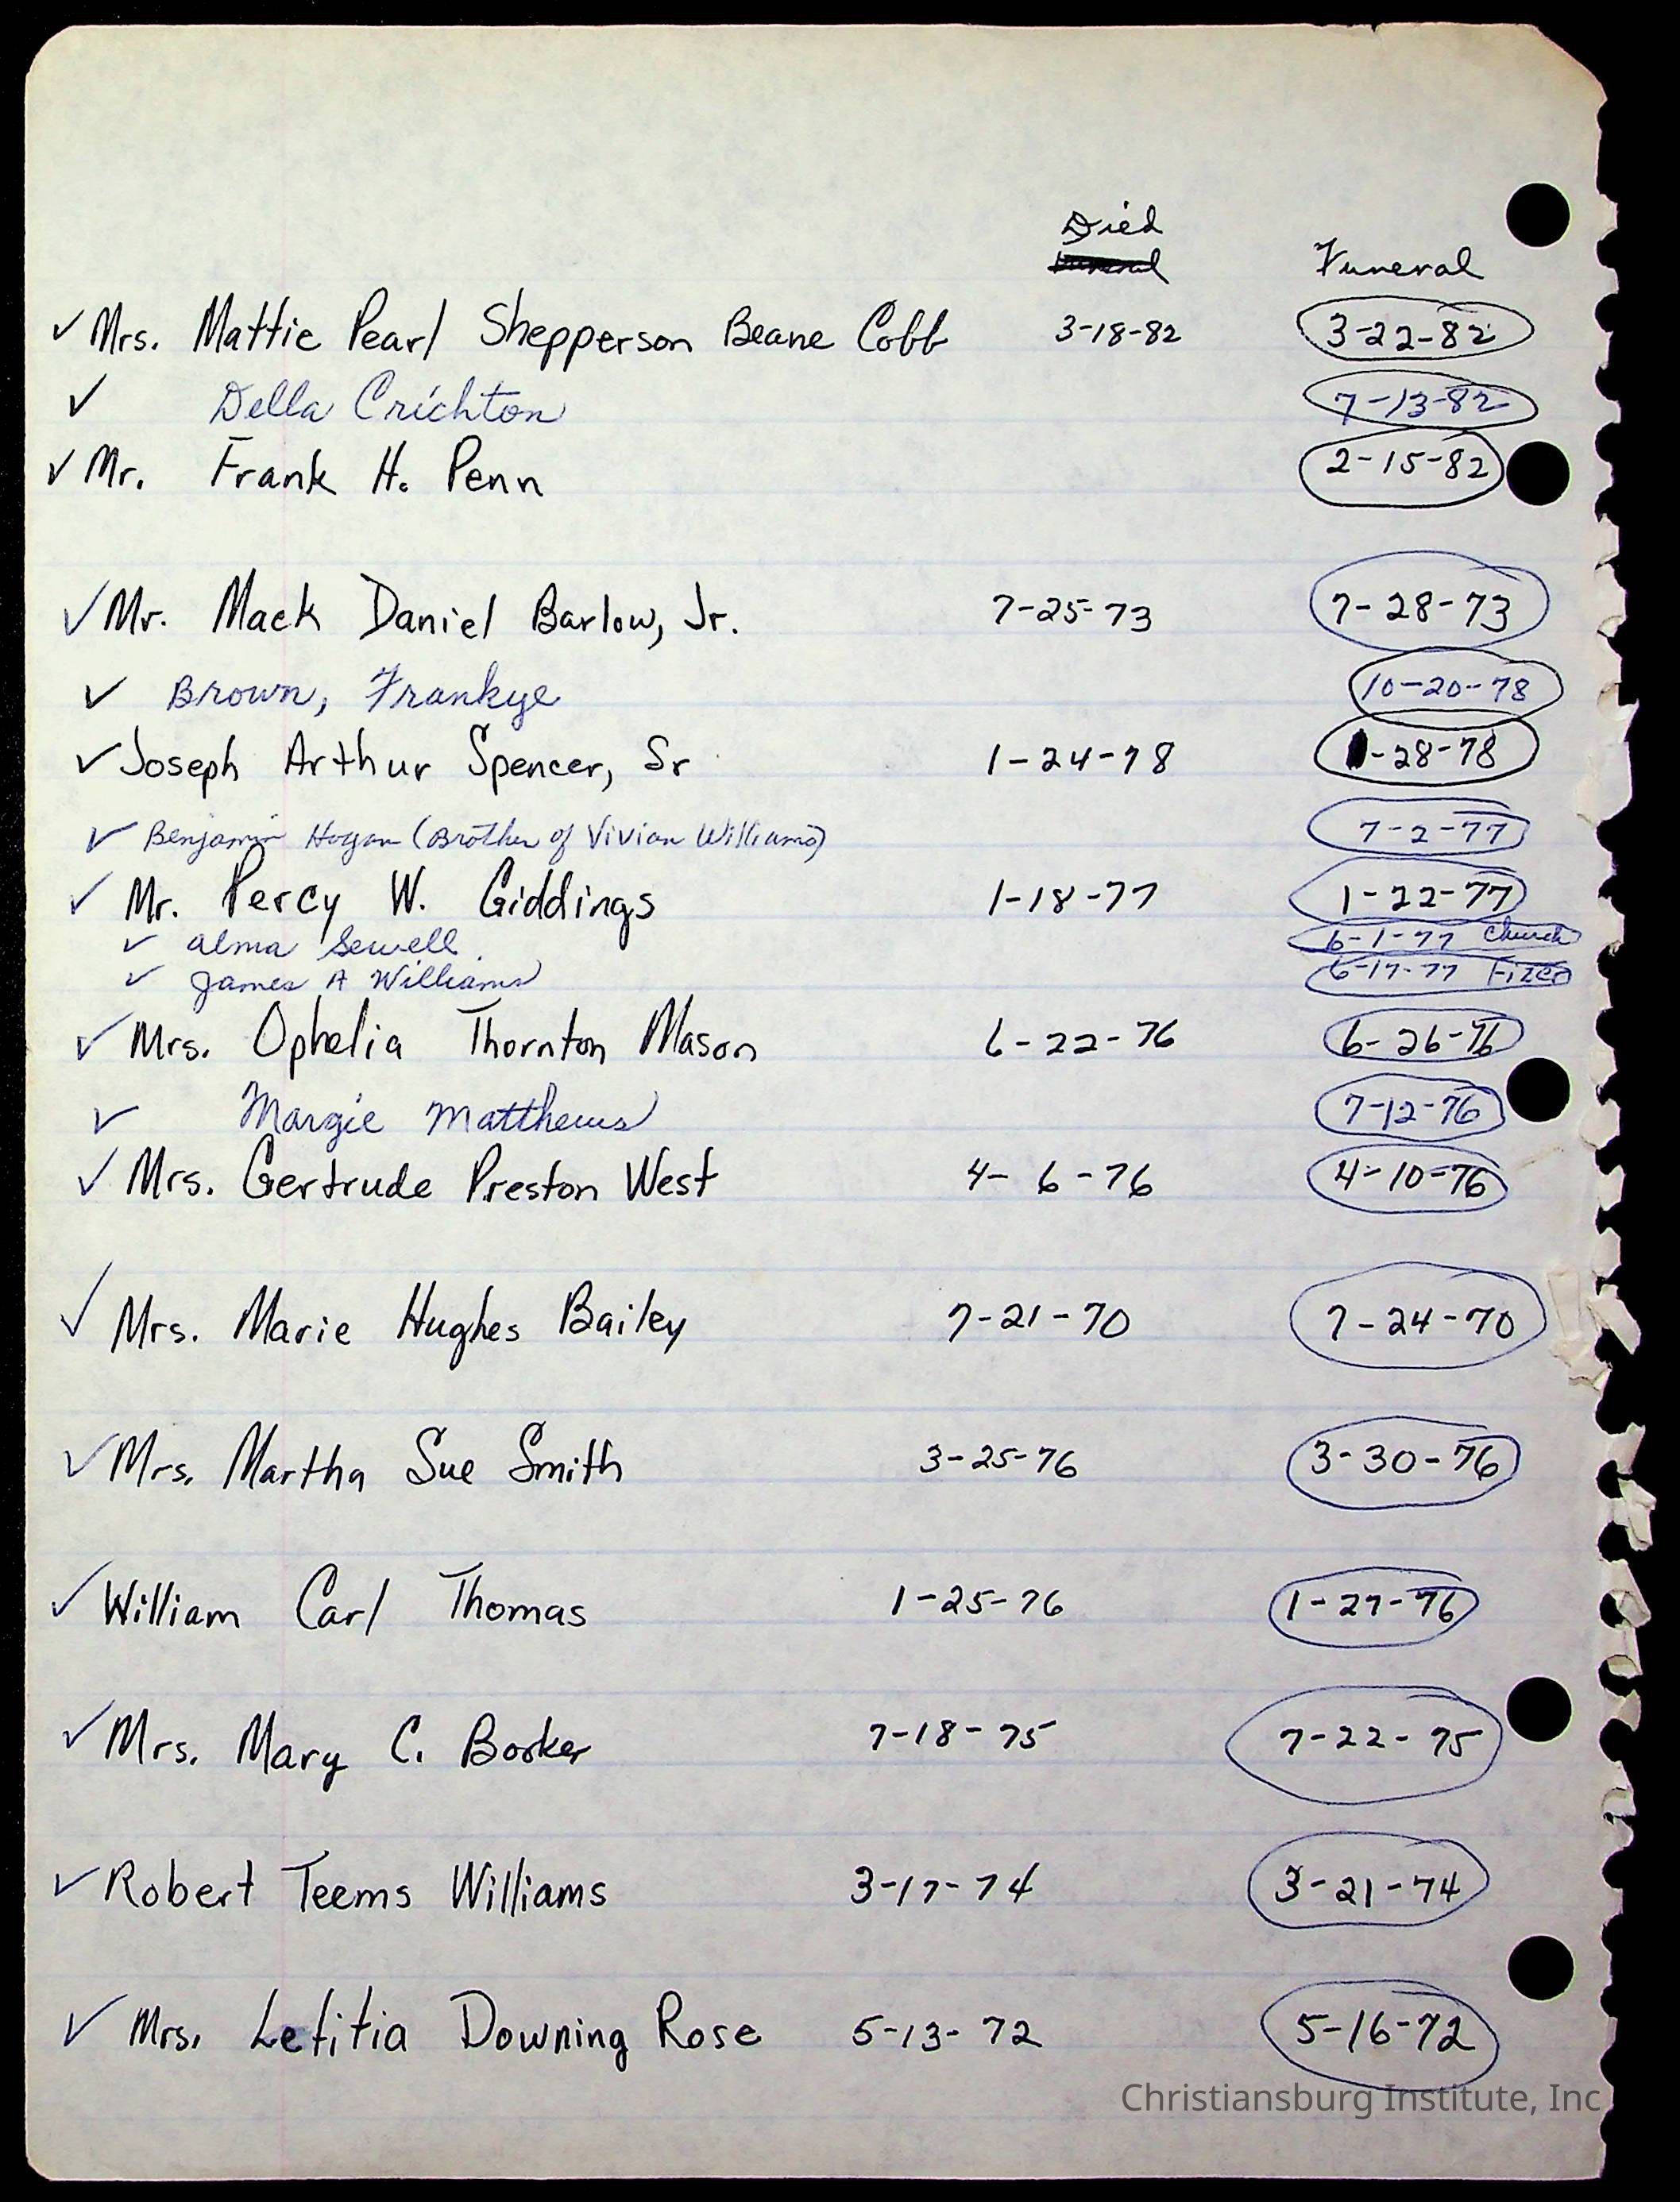 Died
Funeral
✓ Mrs. Mattie Pearl Shepperson Beane Cobb 3-18-82 3-22-82
✓ Della Crichton 7-13-82
✓ Mr. Frank H. Penn 2-15-82
✓ Mr. Mack Daniel Barlow, Jr. 7-25-73 7-28-73
✓ Brown, Frankye 10-20-78
✓ Joseph Arthur Spencer, Sr 1-24-78 1-28-78
✓ Benjamin Hogan (Brother of Vivian Williams) 7-2-77
✓ Mr. Percy W. Giddings 1-18-77 1-22-77
✓ Alma Sewell 6-1-77 Church
✓ James A Williams 6-17-77
✓ Mrs. Ophelia Thornton Mason 6-22-76 6-26-76
✓ Margie Matthews 7-12-76
✓ Mrs. Gertrude Preston West 4-6-76 4-10-76
✓ Mrs. Marie Hughes Bailey 7-21-70 7-24-70
✓ Mrs. Martha Sue Smith 3-25-76 3-30-76
✓ William Carl Thomas 1-25-76 1-27-76
✓ Mrs. Mary C. Booker 7-18-75 7-22-75
✓ Robert Teems Williams 3-17-74 3-21-74
✓ Mrs. Letitia Downing Rose 5-13-72 5-16-72
Christiansburg Institute, Inc